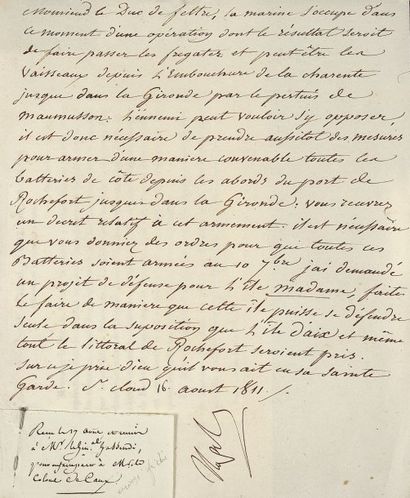 Monsieur le Duc de feltre, la marine s'occupe dans
ce moment d'une opération dont le résultat seroit
de faire passer les fregates et peut être les
Vaisseaux depuis l'Embouchure de la charente
jusque dans la Gironde par le pertuis de
maumusson. L'ennemi peut vouloir s'y opposer,
il est donc nécessaire de prendre aussitot des mesures
pour armer d'une maniere convenable toutes les
batteries de côte depuis les abords du port de
Rochefort jusques dans la Gironde. vous recevrez
un decret relatif à cet armement. il est nécessaire
que vous donniez des ordres pour que toutes ces
Batteries soient armées au 10 7bre j'ai demandé
un projet de défense pour l'ile madame, faites
le faire de maniere que cette ile puisse se défendre
seule dans la suposition que l'ile d'aix et même
tout le littoral de Rochefort seroient pris.
sur ce je prie dieu qu'il vous ait en sa sainte
Garde. St cloud 16 aoust 1811 /.
Nap
Remis le 17 aout
à Mr le Gin. al Gassendi,